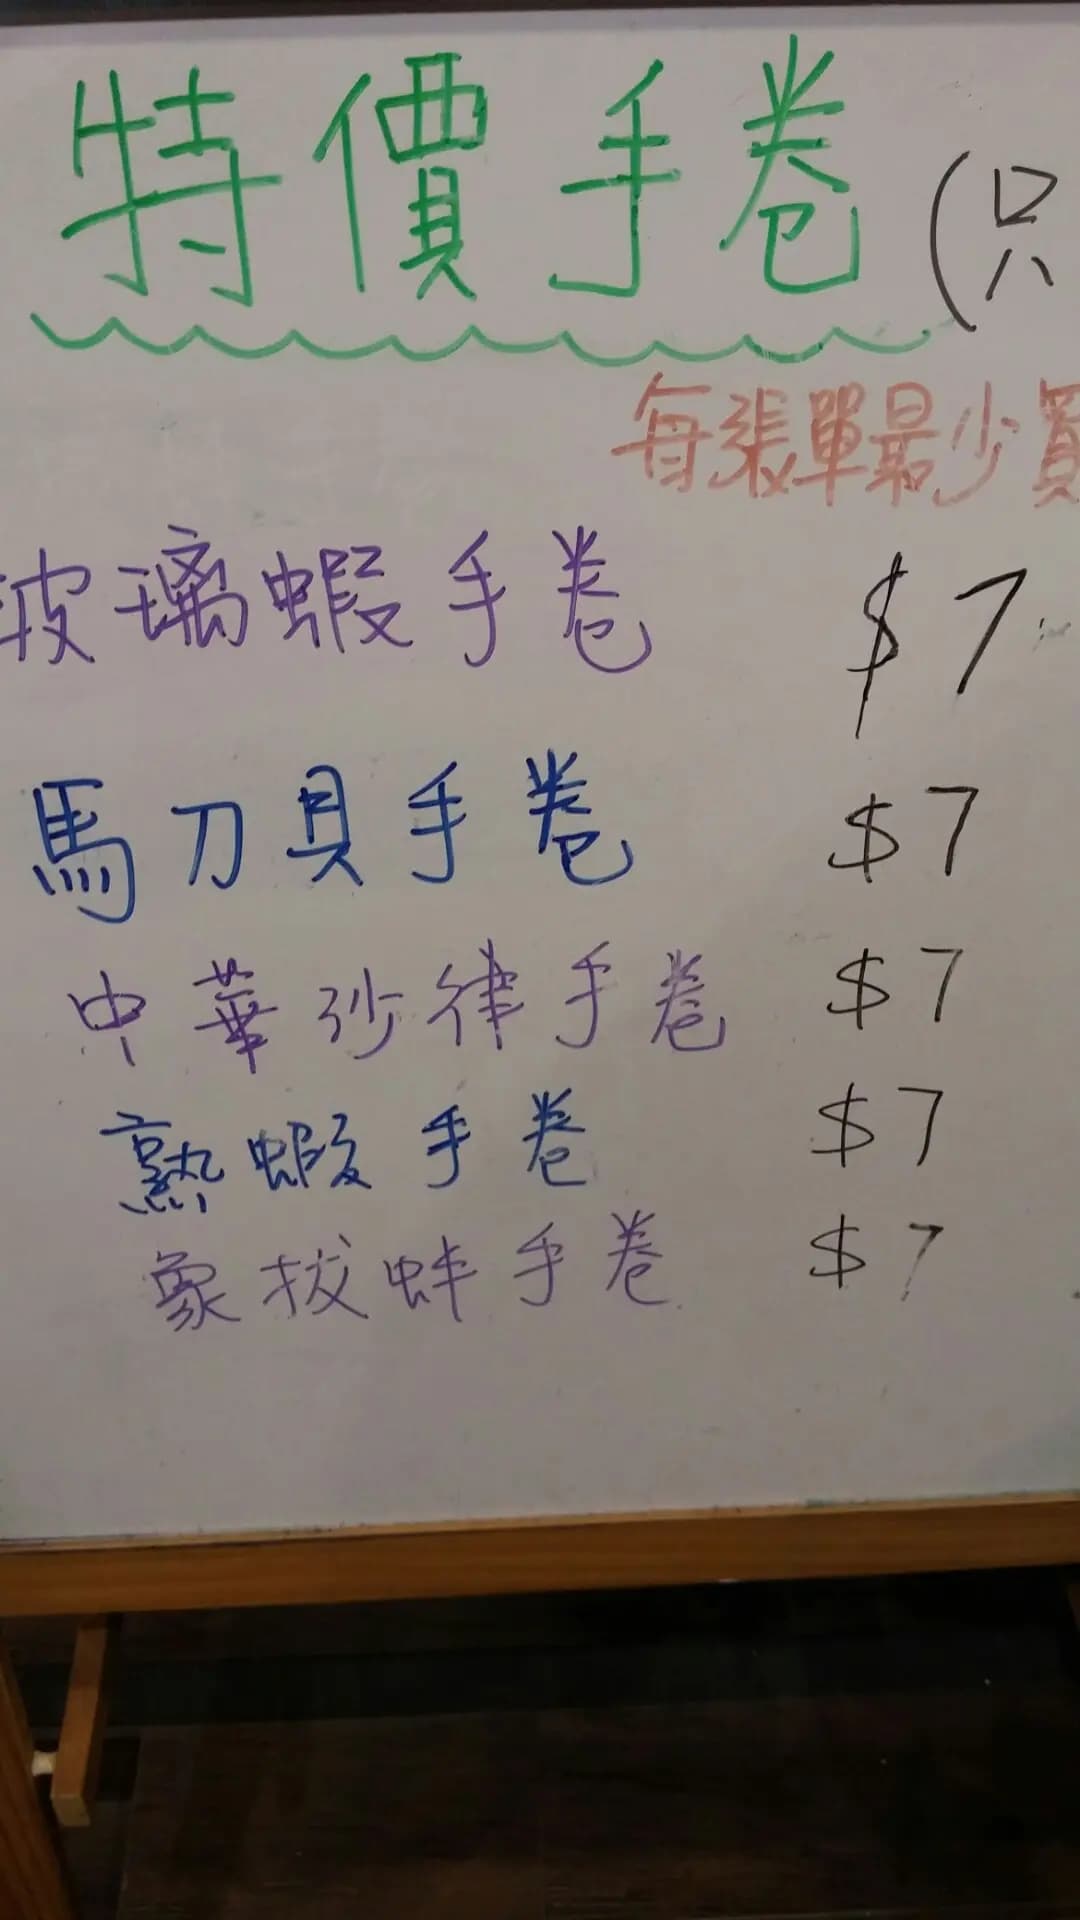 特價手卷 (只
每張單最少買
玻璃蝦手卷 $7
馬刀貝手卷 $7
中華沙律手卷 $7
熟蝦手卷 $7
象拔蚌手卷 $7